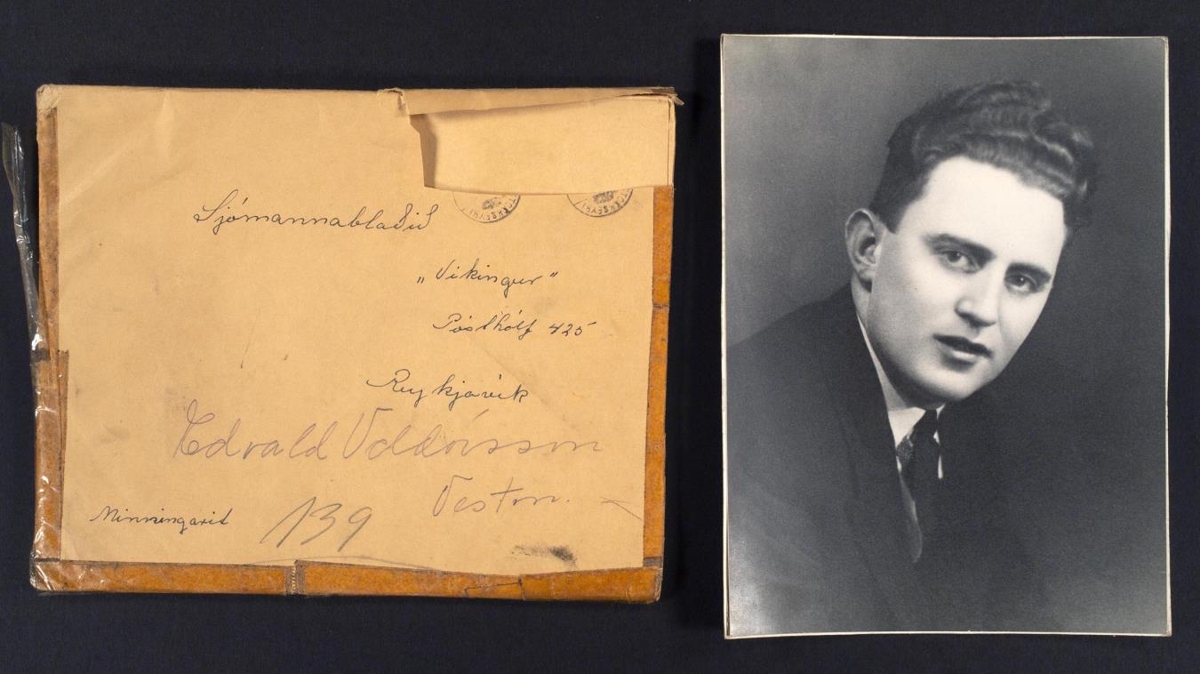 Sjómannablaðið
"Víkingur"
Pósthólf 425
Reykjavík
Edvald
Vestm.
Minningarit
139